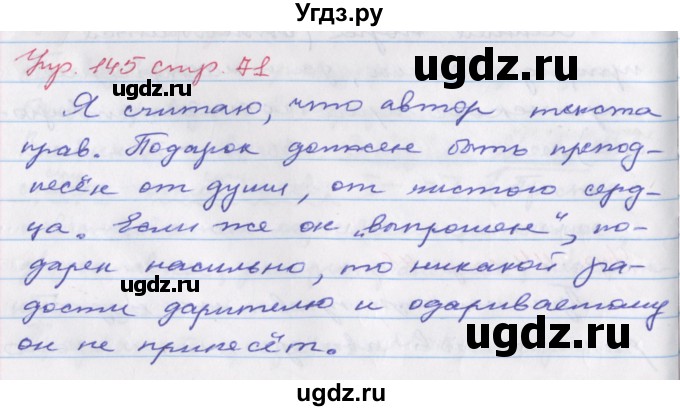 Угдз.ру
Упр. 145 стр. 71
ugdz.ru
ugdz.ru
Я считаю, что автор текста
прав. Подарок должен быть препод-
несён от души, от чистого серд-
ugdz.ru
ugdz.ru
ца. Если же он „выпрошен“, по-
дарен насильно, то никакой ра-
ugdz.ru
ugdz.ru
дости дарителю и одариваемому
он не принесёт.
ugdz.ru
ugdz.ru